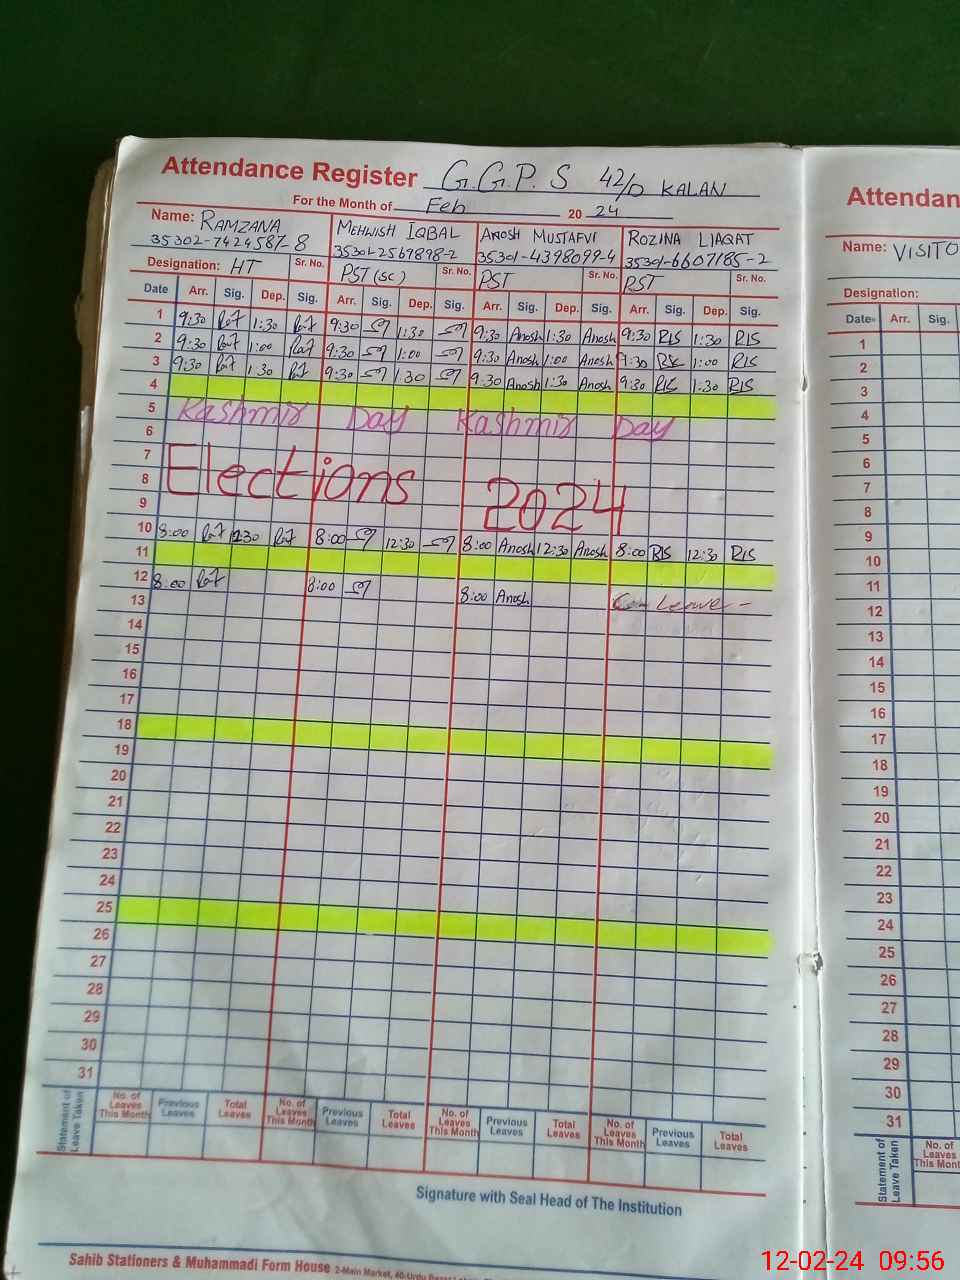 Attendance Register G.G.P.S 42/D KALAN
For the Month of Feb 20 24
Name: RAMZANA MEHWISH IQBAL ANOSH MUSTAFVI ROZINA LIAQAT
35302-7424587-8 35301-2569898-2 35301-4398099-4 35301-6607185-2
Designation: HT Sr. No. PST (SC) Sr. No. PST Sr. No. PST Sr. No.
Date Arr. Sig. Dep. Sig. Arr. Sig. Dep. Sig. Arr. Sig. Dep. Sig. Arr. Sig. Dep. Sig.
1 9:30 1:30 9:30 1:30 9:30 Anosh 1:30 Anosh 9:30 RIS 1:30 RIS
2 9:30 1:00 9:30 1:00 9:30 Anosh 1:00 Anosh 9:30 RIS 1:00 RIS
3 9:30 1:30 9:30 1:30 9:30 Anosh 1:30 Anosh 9:30 RIS 1:30 RIS
4
5 Kashmir Day Kashmir Day
6
7
8 Elections 2024
9
10 8:00 12:30 8:00 12:30 8:00 Anosh 12:30 Anosh 8:00 RIS 12:30 RIS
11
12 8:00 8:00 8:00 Anosh Leave -
13
14
15
16
17
18
19
20
21
22
23
24
25
26
27
28
29
30
31
Statement of Leave Taken
No. of Leaves This Month Previous Leaves Total Leaves No. of Leaves This Month Previous Leaves Total Leaves No. of Leaves This Month Previous Leaves Total Leaves No. of Leaves This Month Previous Leaves Total Leaves
Signature with Seal Head of The Institution
Sahib Stationers & Muhammadi Form House 2-Main Market, 40-Urdu
Attendan
Name: VISITO
Designation:
Date Arr. Sig.
1
2
3
4
5
6
7
8
9
10
11
12
13
14
15
16
17
18
19
20
21
22
23
24
25
26
27
28
29
30
31
Statement of Leave Taken
No. of Leaves This Month
12-02-24 09:56